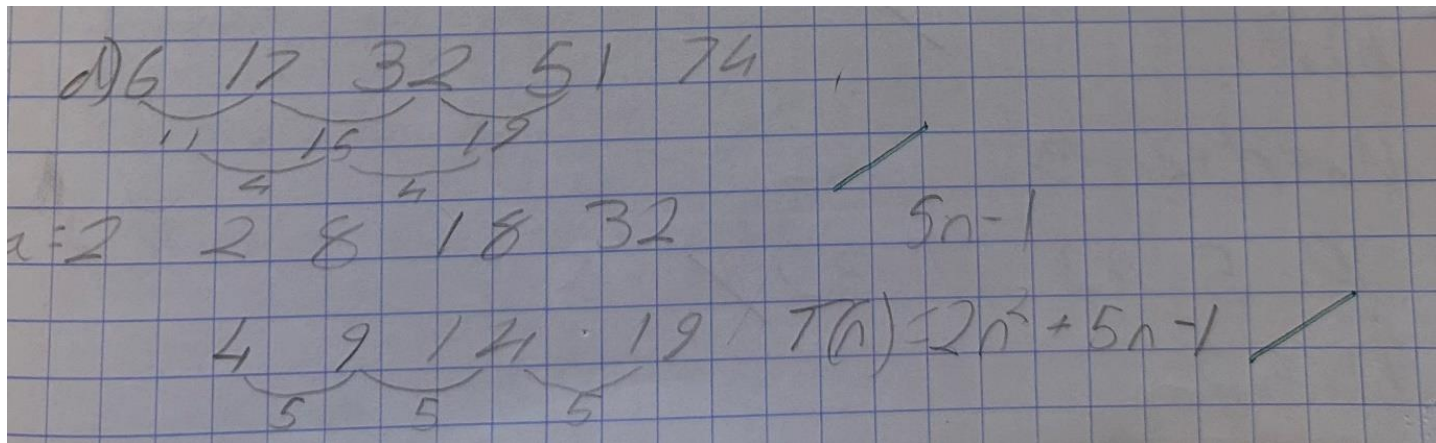 d) 6 17 32 51 74
11 15 19
4 4
a=2 2 8 18 32 5n-1
4 9 14 19 T(n)=2n²+5n-1
5 5 5